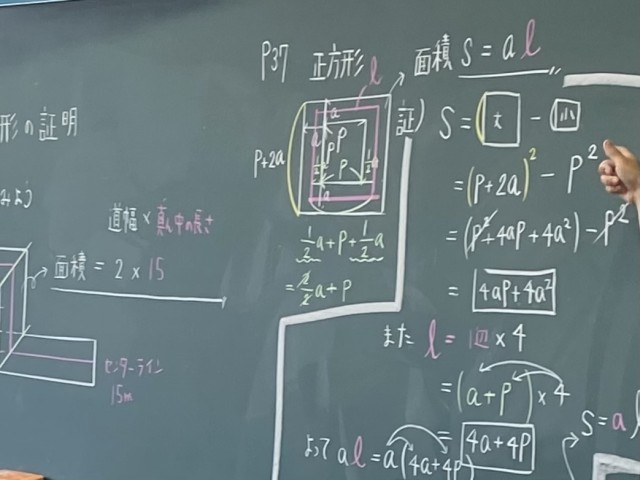 形の証明
みよう
道幅 × 真ん中の長さ
面積 = 2 × 15
センターライン
15m
P37 正方形
l
a
a
P
P
P
1/2a
a
P+2a
1/2a+P+1/2a
=2/2a+P
面積 S=al
証) S=大-小
=(P+2a)²-P²
=(P²+4aP+4a²)-P²
=4aP+4a²
また l=1辺×4
=(a+P)×4
=4a+4P
よって al=a(4a+4P
S=al